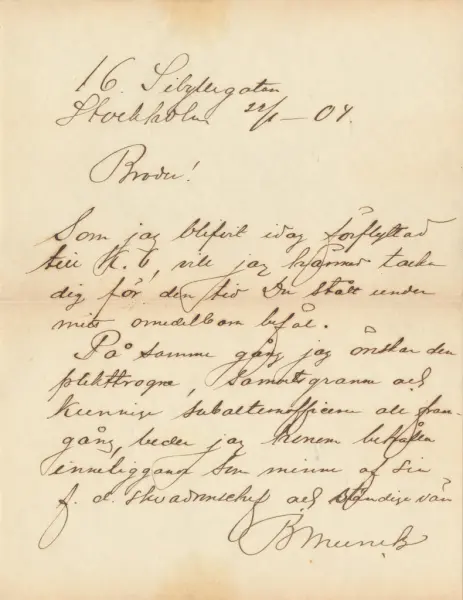 16 Sibyllegatan
Stockholm 22/1 – 04.
Broder!
Som jag blifvit idag förflyttad
till K. 6, vill jag härmed tacka
dig för den tid Du stått under
mitt omedelbara befäl.
På samma gång jag önskar den
plikttrogne, samvetsgranne och
kunnige subalternofficeren all fram-
gång, beder jag honom behålla
inneliggande som minne af sin
f. d. skvadronschef och ständige vän
BMunck